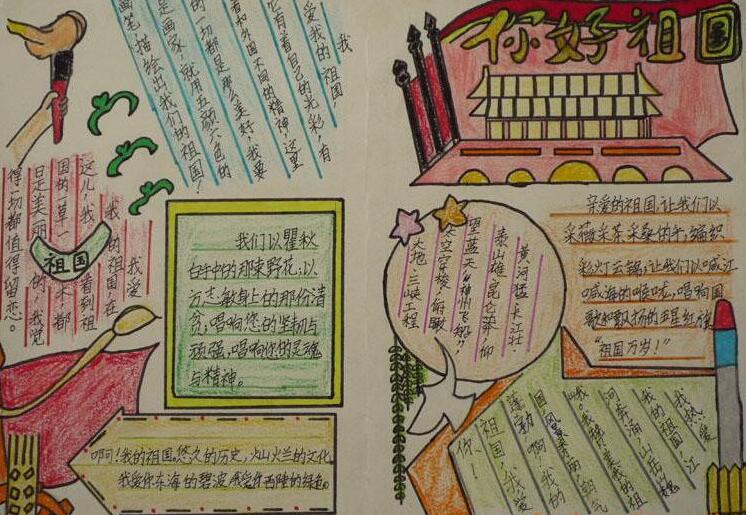 我
爱我的祖国，
它有着自己的光彩，有
着和外国不同的精神，这里
的一切都是那么美好，我要
是画家，就用五颜六色的
画笔，描绘出我们的祖国！
你好祖国
我爱
我的祖国，在
这儿，我看到祖
国的一草一木都
日是美丽的，我觉
得一切都值得留恋。
祖国
我们以瞿秋
白手中的那束野花；以
方志敏身上的那份清
贫；唱响您的坚韧与
顽强，唱响你的灵魂
与精神。
啊！我的祖国。悠久的历史，灿火兰的文化。
我爱你东海的碧波，我爱你西陲的绿色。
黄河猛，长江壮，
泰山雄，昆仑莽，仰
望蓝天"神州飞船"
太空穿梭，俯瞰
大地，三峡工程
亲爱的祖国，让我们以
采薇采茶采桑的手，编织
彩灯云锦；让我们以喊江
喊海的喉咙，唱响国
歌和飘扬的五星红旗
"祖国万岁！"
我热爱
我的祖国，江
河奔涌，山岳巍
峨。我赞美我的祖
国，风景秀丽，朝气
蓬勃。啊！我的
祖国，我爱
你！